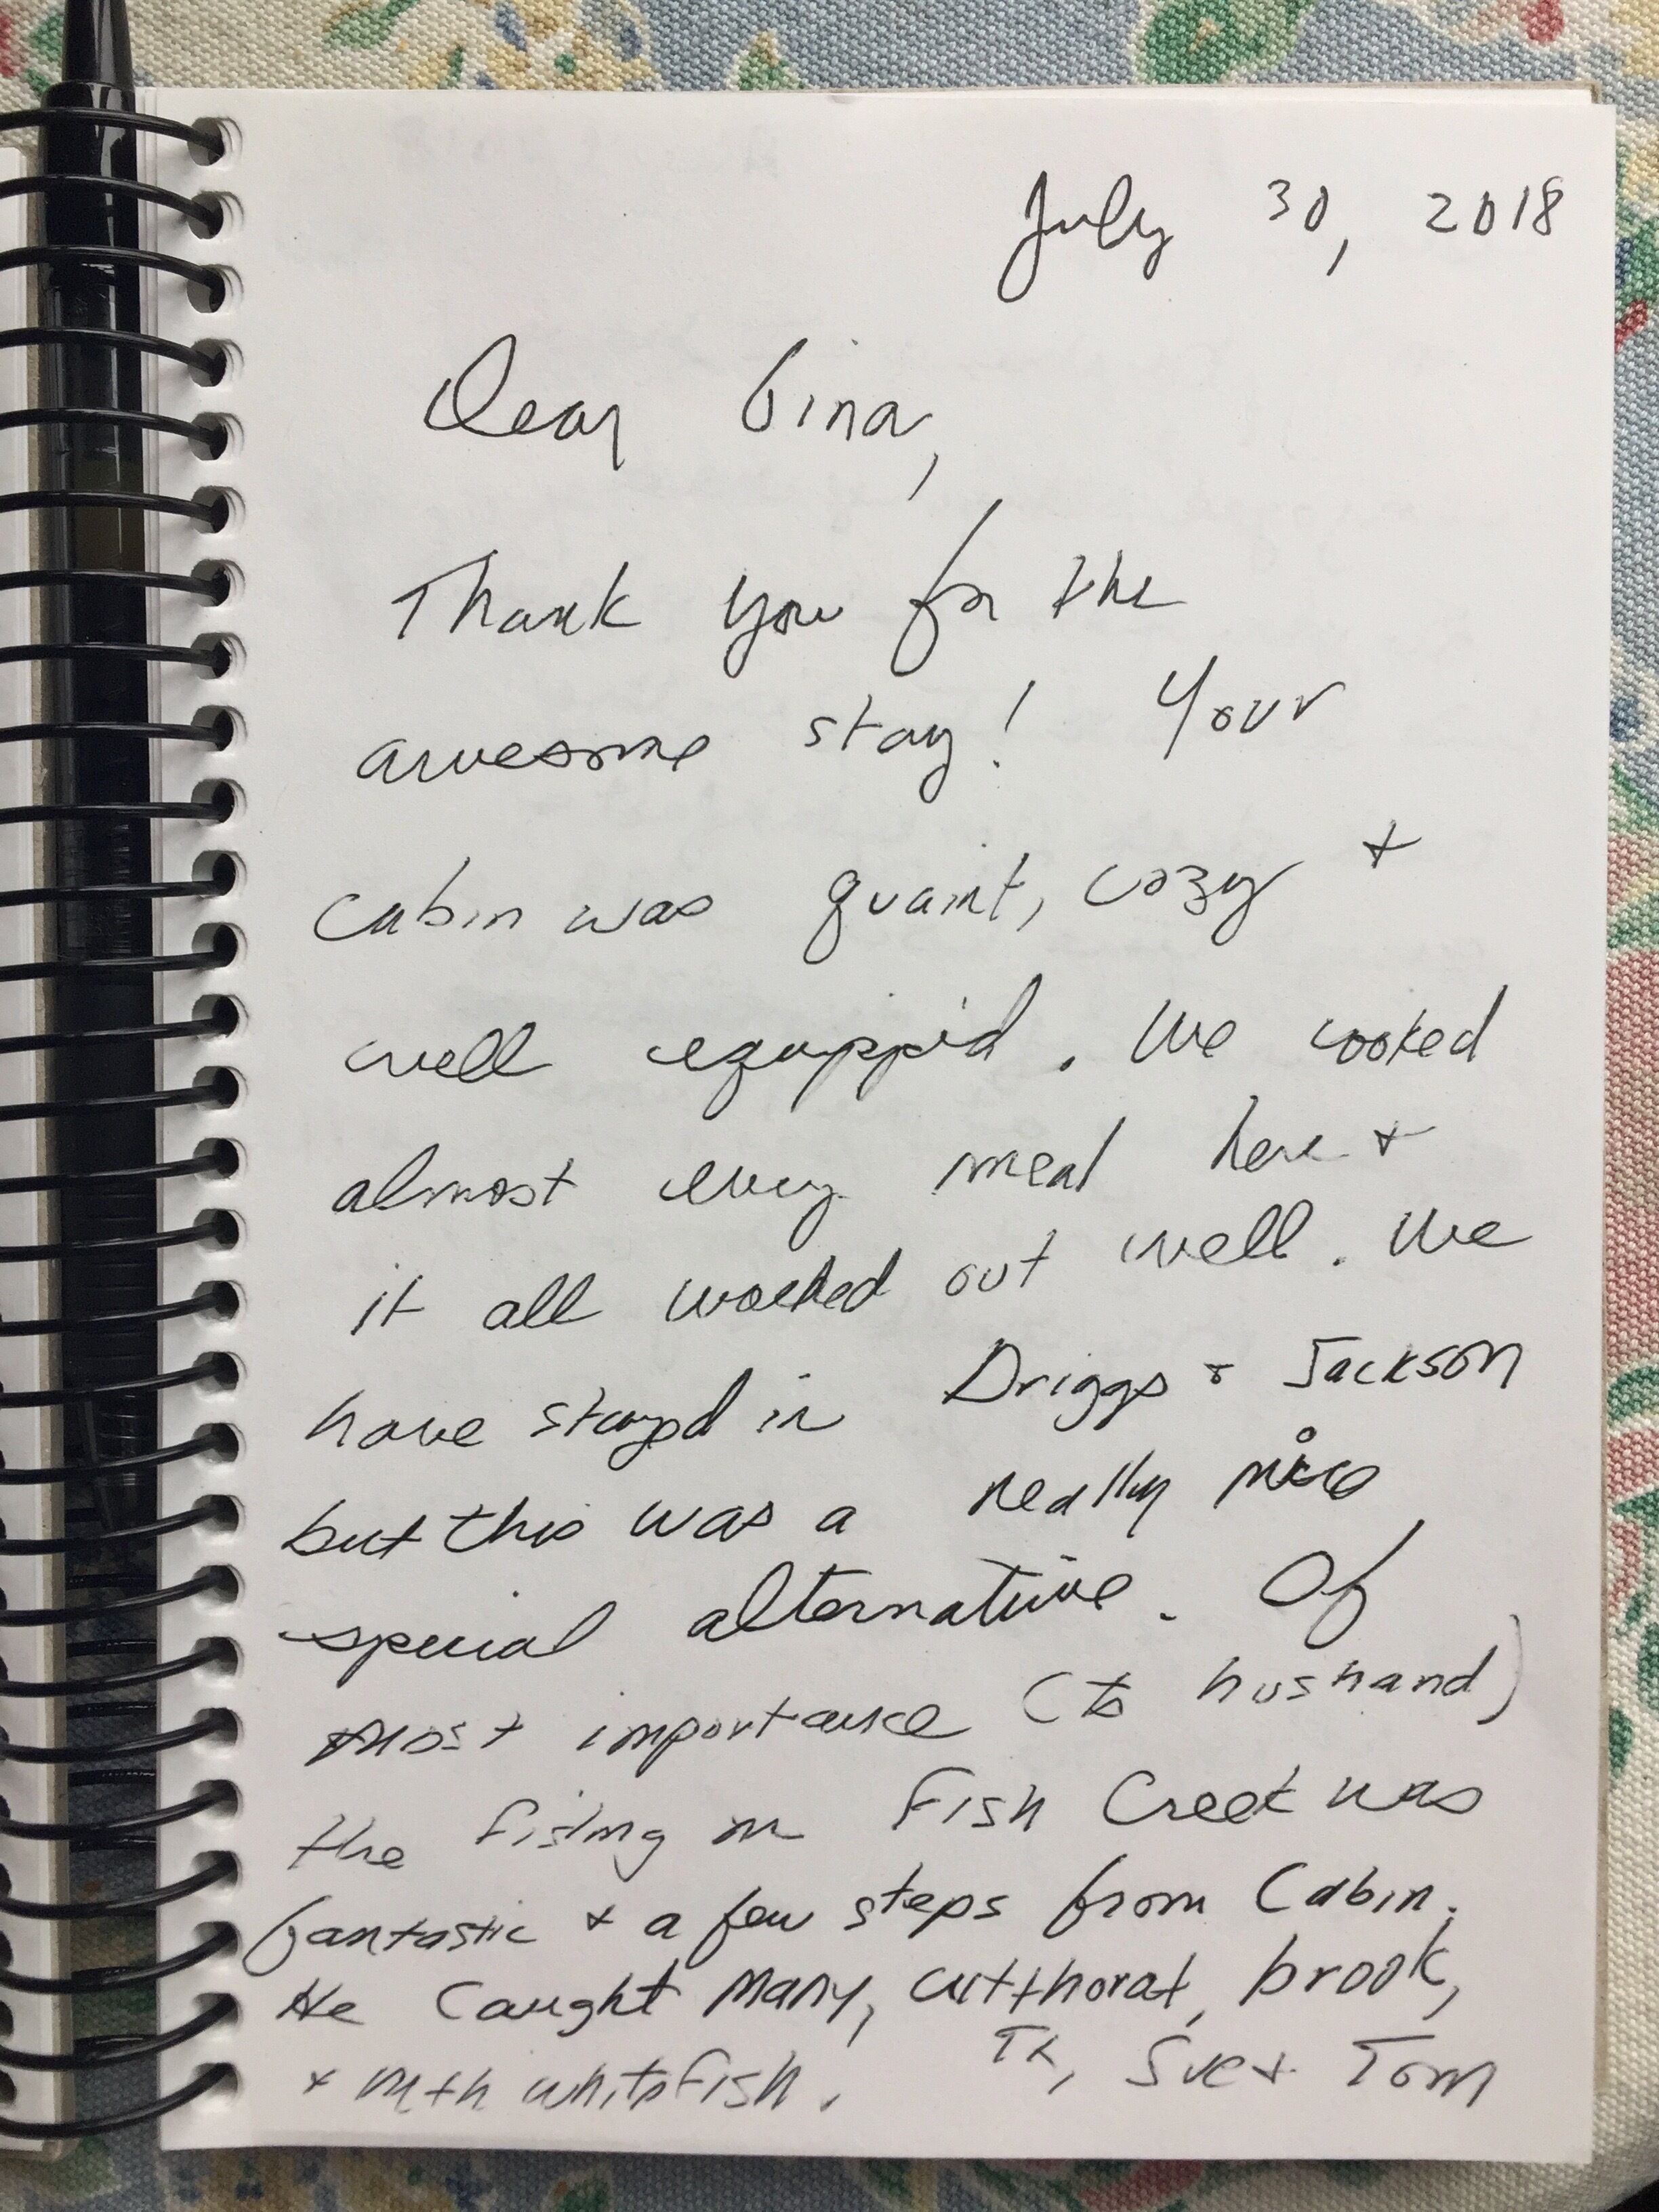 July 30, 2018
Dear Gina,
Thank you for the
awesome stay! Your
cabin was quaint, cozy +
well equipped. We cooked
almost every meal here +
it all worked out well. We
have stayed in Driggs + Jackson
but this was a really nice
special alternative. Of
most importance (to husband)
the fishing on Fish Creek was
fantastic + a few steps from Cabin.
He caught many, cutthorat, brook,
+ mtn whitefish. TX, Sue + Tom